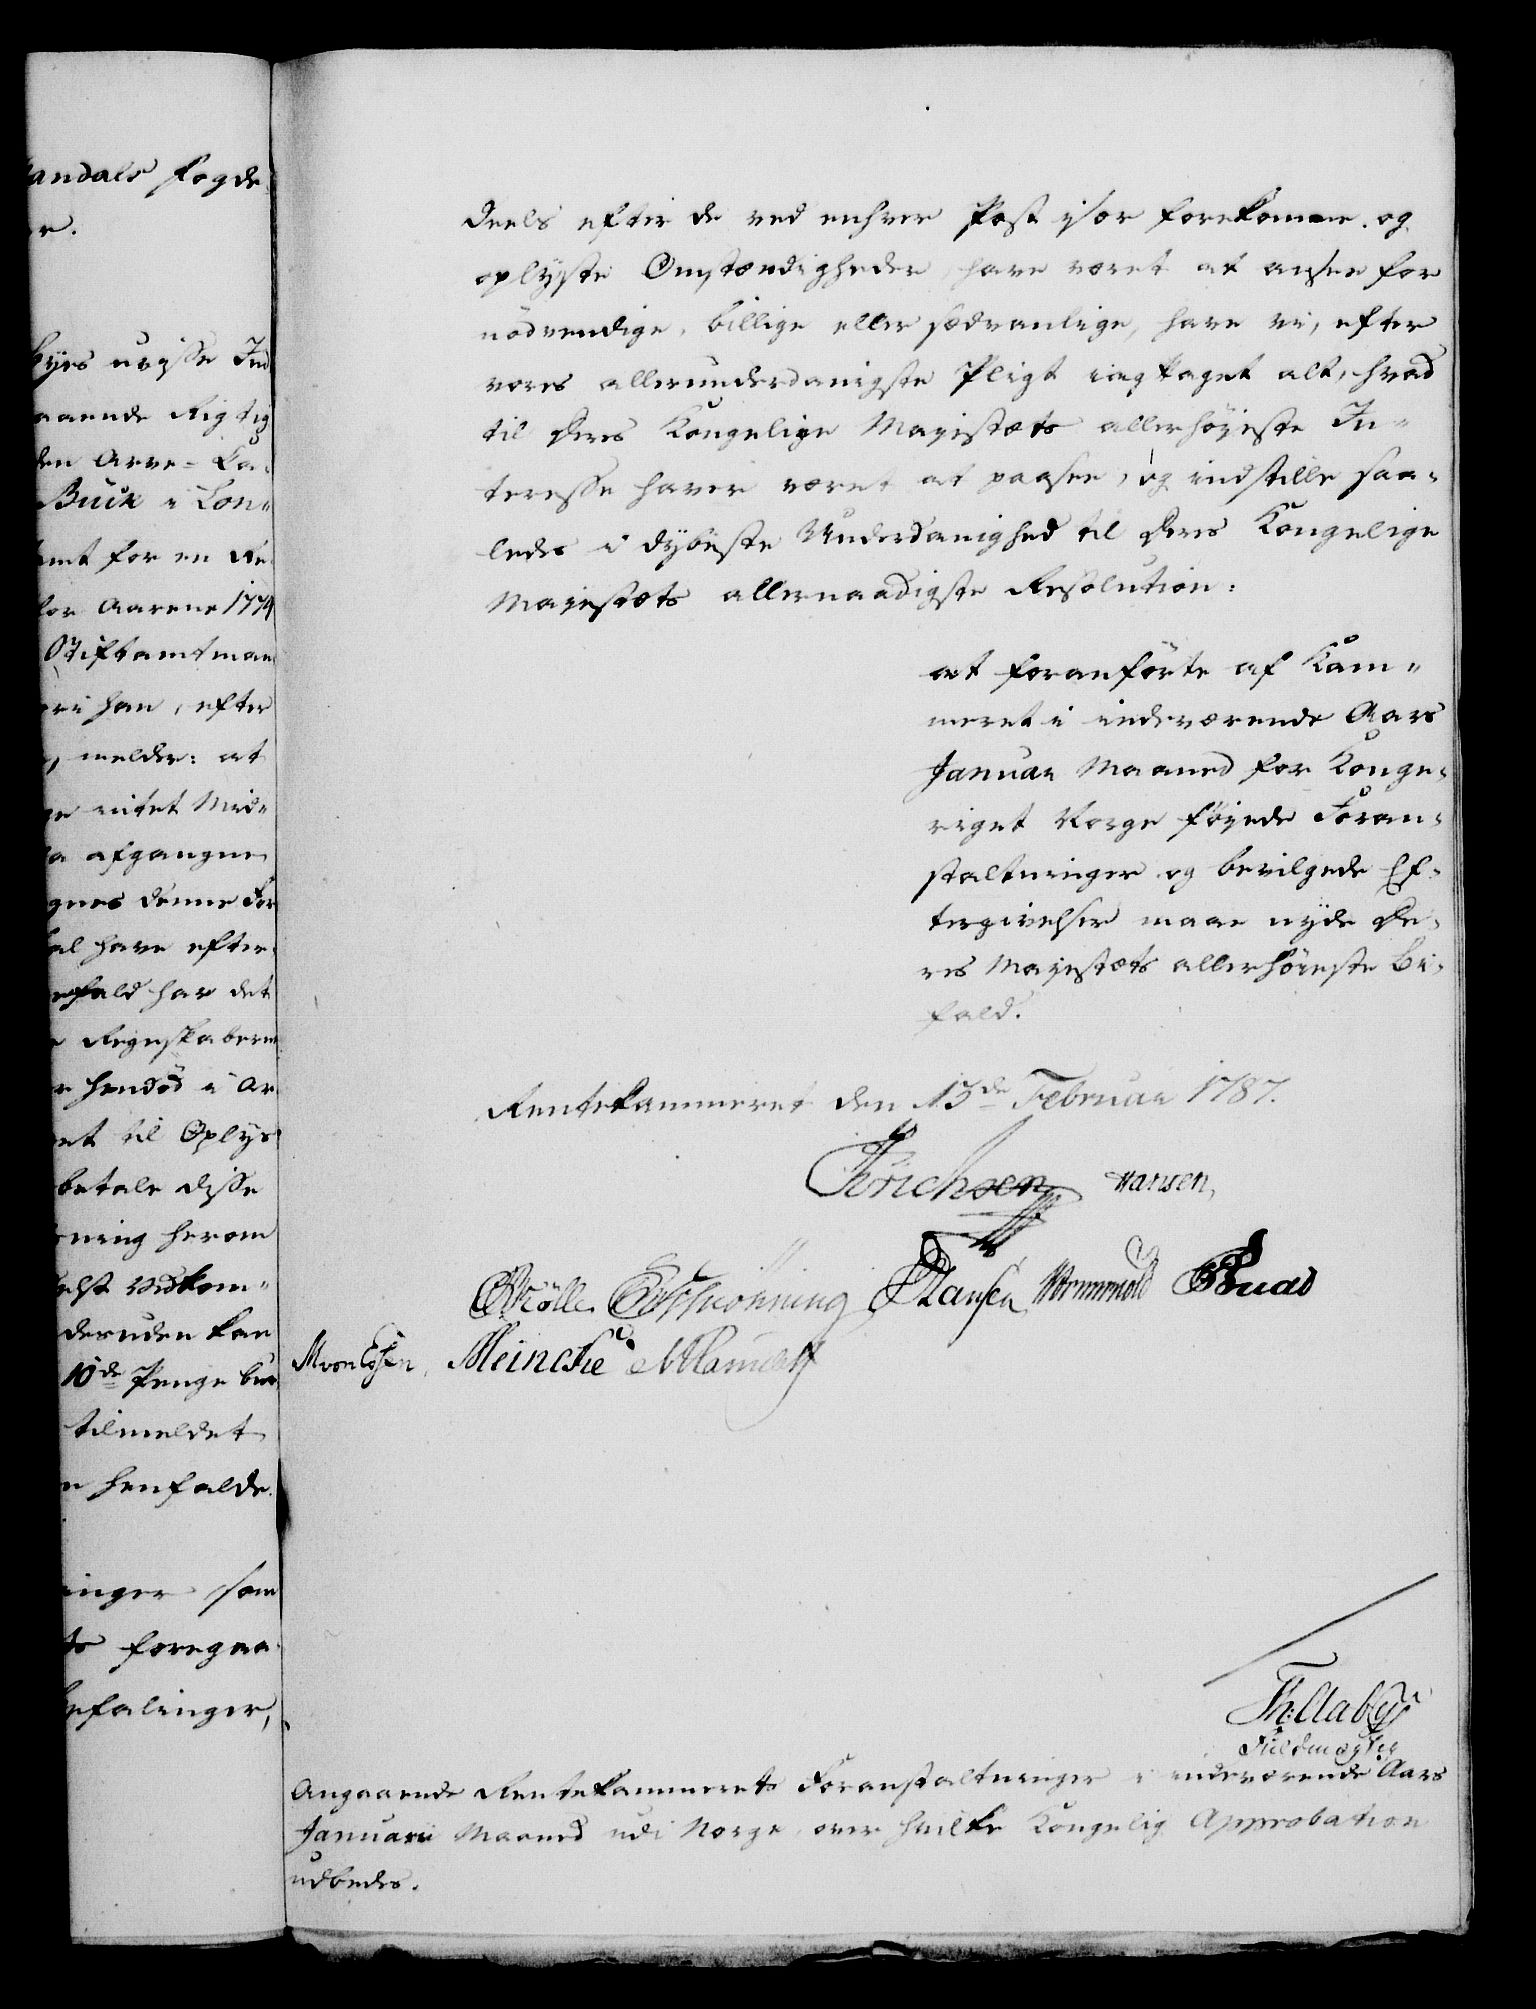 andals Fogde
r.
byes uvisse Ind
aaende Rigtig
den Arve-Ca-
Buck i Lon-
amt for en Re-
for Aarene 1774
Stiftamtman
ori han, efter
, melder: at
ge intet Mid-
a afgangne
gnes denne For
al have efter-
efald har det
e Regnskaberne
r hendød i Ar-
et til Oplys
betale disse
ning herom
elst vedkom-
deruden kan
10de Penge bur
tilmeldet
n henfalde.
inger som
ts foregaa-
befalinger,
deels efter de ved enhver Post især forekomne og
oplyste Omstændigheder, have været at ansee for
nödvendige, billige eller sædvanlige, have vi, efter
vores allerunderdanigste Pligt iagttaget alt, hvad
til Deres Kongelige Majestæts allerhöyeste In-
teresse haver været at paasee, og indstille saa-
ledes i dybeste Underdanighed til Deres Kongelige
Majestæts allernaadigste Resolution:
at foranförte af Kam-
meret i indeværende Aars
Januar Maaned for Konge-
riget Norge föyede Foran-
staltninger og bevilgede Ef-
tergivelser maae nyde De-
res Majestæts allerhöyeste Bi-
fald.
Rentekammeret den 13de Februar 1787.
Hansen,
Hansen
M von Essen, Meincke
Th: Aabye
Angaaende Rentekammerets Foranstaltninger i indeværende Aars
Januarii Maaned udi Norge, over hvilke Kongelig Approbation
udbedes.